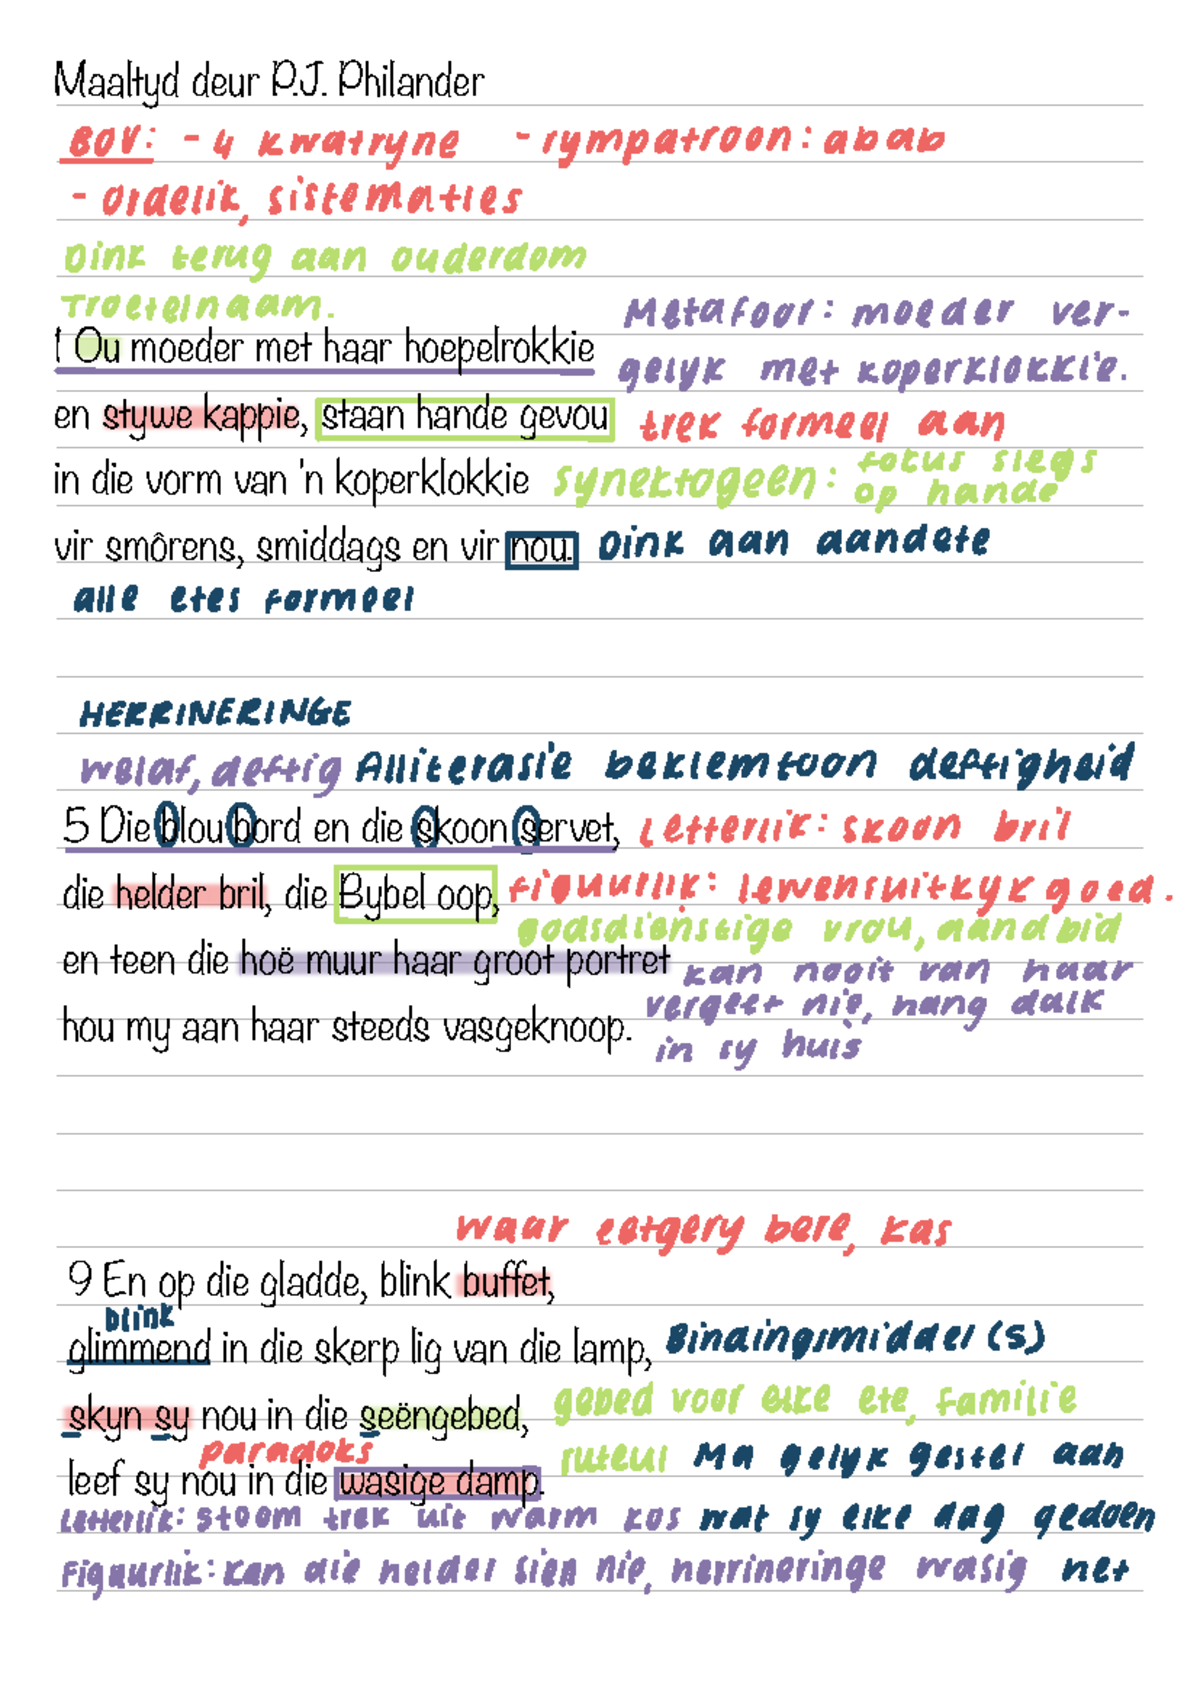 Maaltyd deur P.J. Philander
BOV: - 4 kwatryne - rympatroon: abab
- Ordelik, sistematies
Dink terug aan ouderdom
Troetelnaam.
Metafoor: moeder ver-
1 Ou moeder met haar hoepelrokkie
gelyk met koperklokkie.
en stywe kappie, staan hande gevou trek formeel aan
in die vorm van 'n koperklokkie Synektogeen: fokus slegs
op hande
vir smôrens, smiddags en vir nou. Dink aan aandete
alle etes formeel
HERRINERINGE
welaf, deftig Alliterasie beklemtoon deftigheid
5 Die blou bord en die skoon servet, Letterlik: skoon bril
die helder bril, die Bybel oop, figuurlik: lewensuitkyk goed.
godsdienstige vrou, aandbid
en teen die hoë muur haar groot portret kan nooit van haar
vergeet nie, hang dalk
hou my aan haar steeds vasgeknoop.
in sy huis
waar eetgery bere, kas
9 En op die gladde, blink buffet,
blink
glimmend in die skerp lig van die lamp, Bindingsmiddel (s)
skyn sy nou in die seëngebed, gebed voor elke ete, familie
paradoks
ruteul Ma gelyk gestel aan
leef sy nou in die wasige damp.
Letterlik: stoom trek uit warm kos wat sy elke dag gedoen
Figuurlik: kan die helder sien nie, herrineringe wasig het